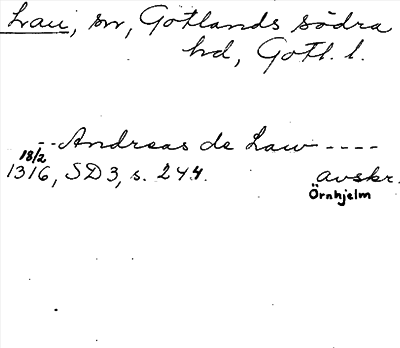 Lau, sn, Gotlands södra
hd, Gotl. l.
-- Andreas de Law ----
18/2
1316, SD 3, s. 244. avskr.
Örnhjelm